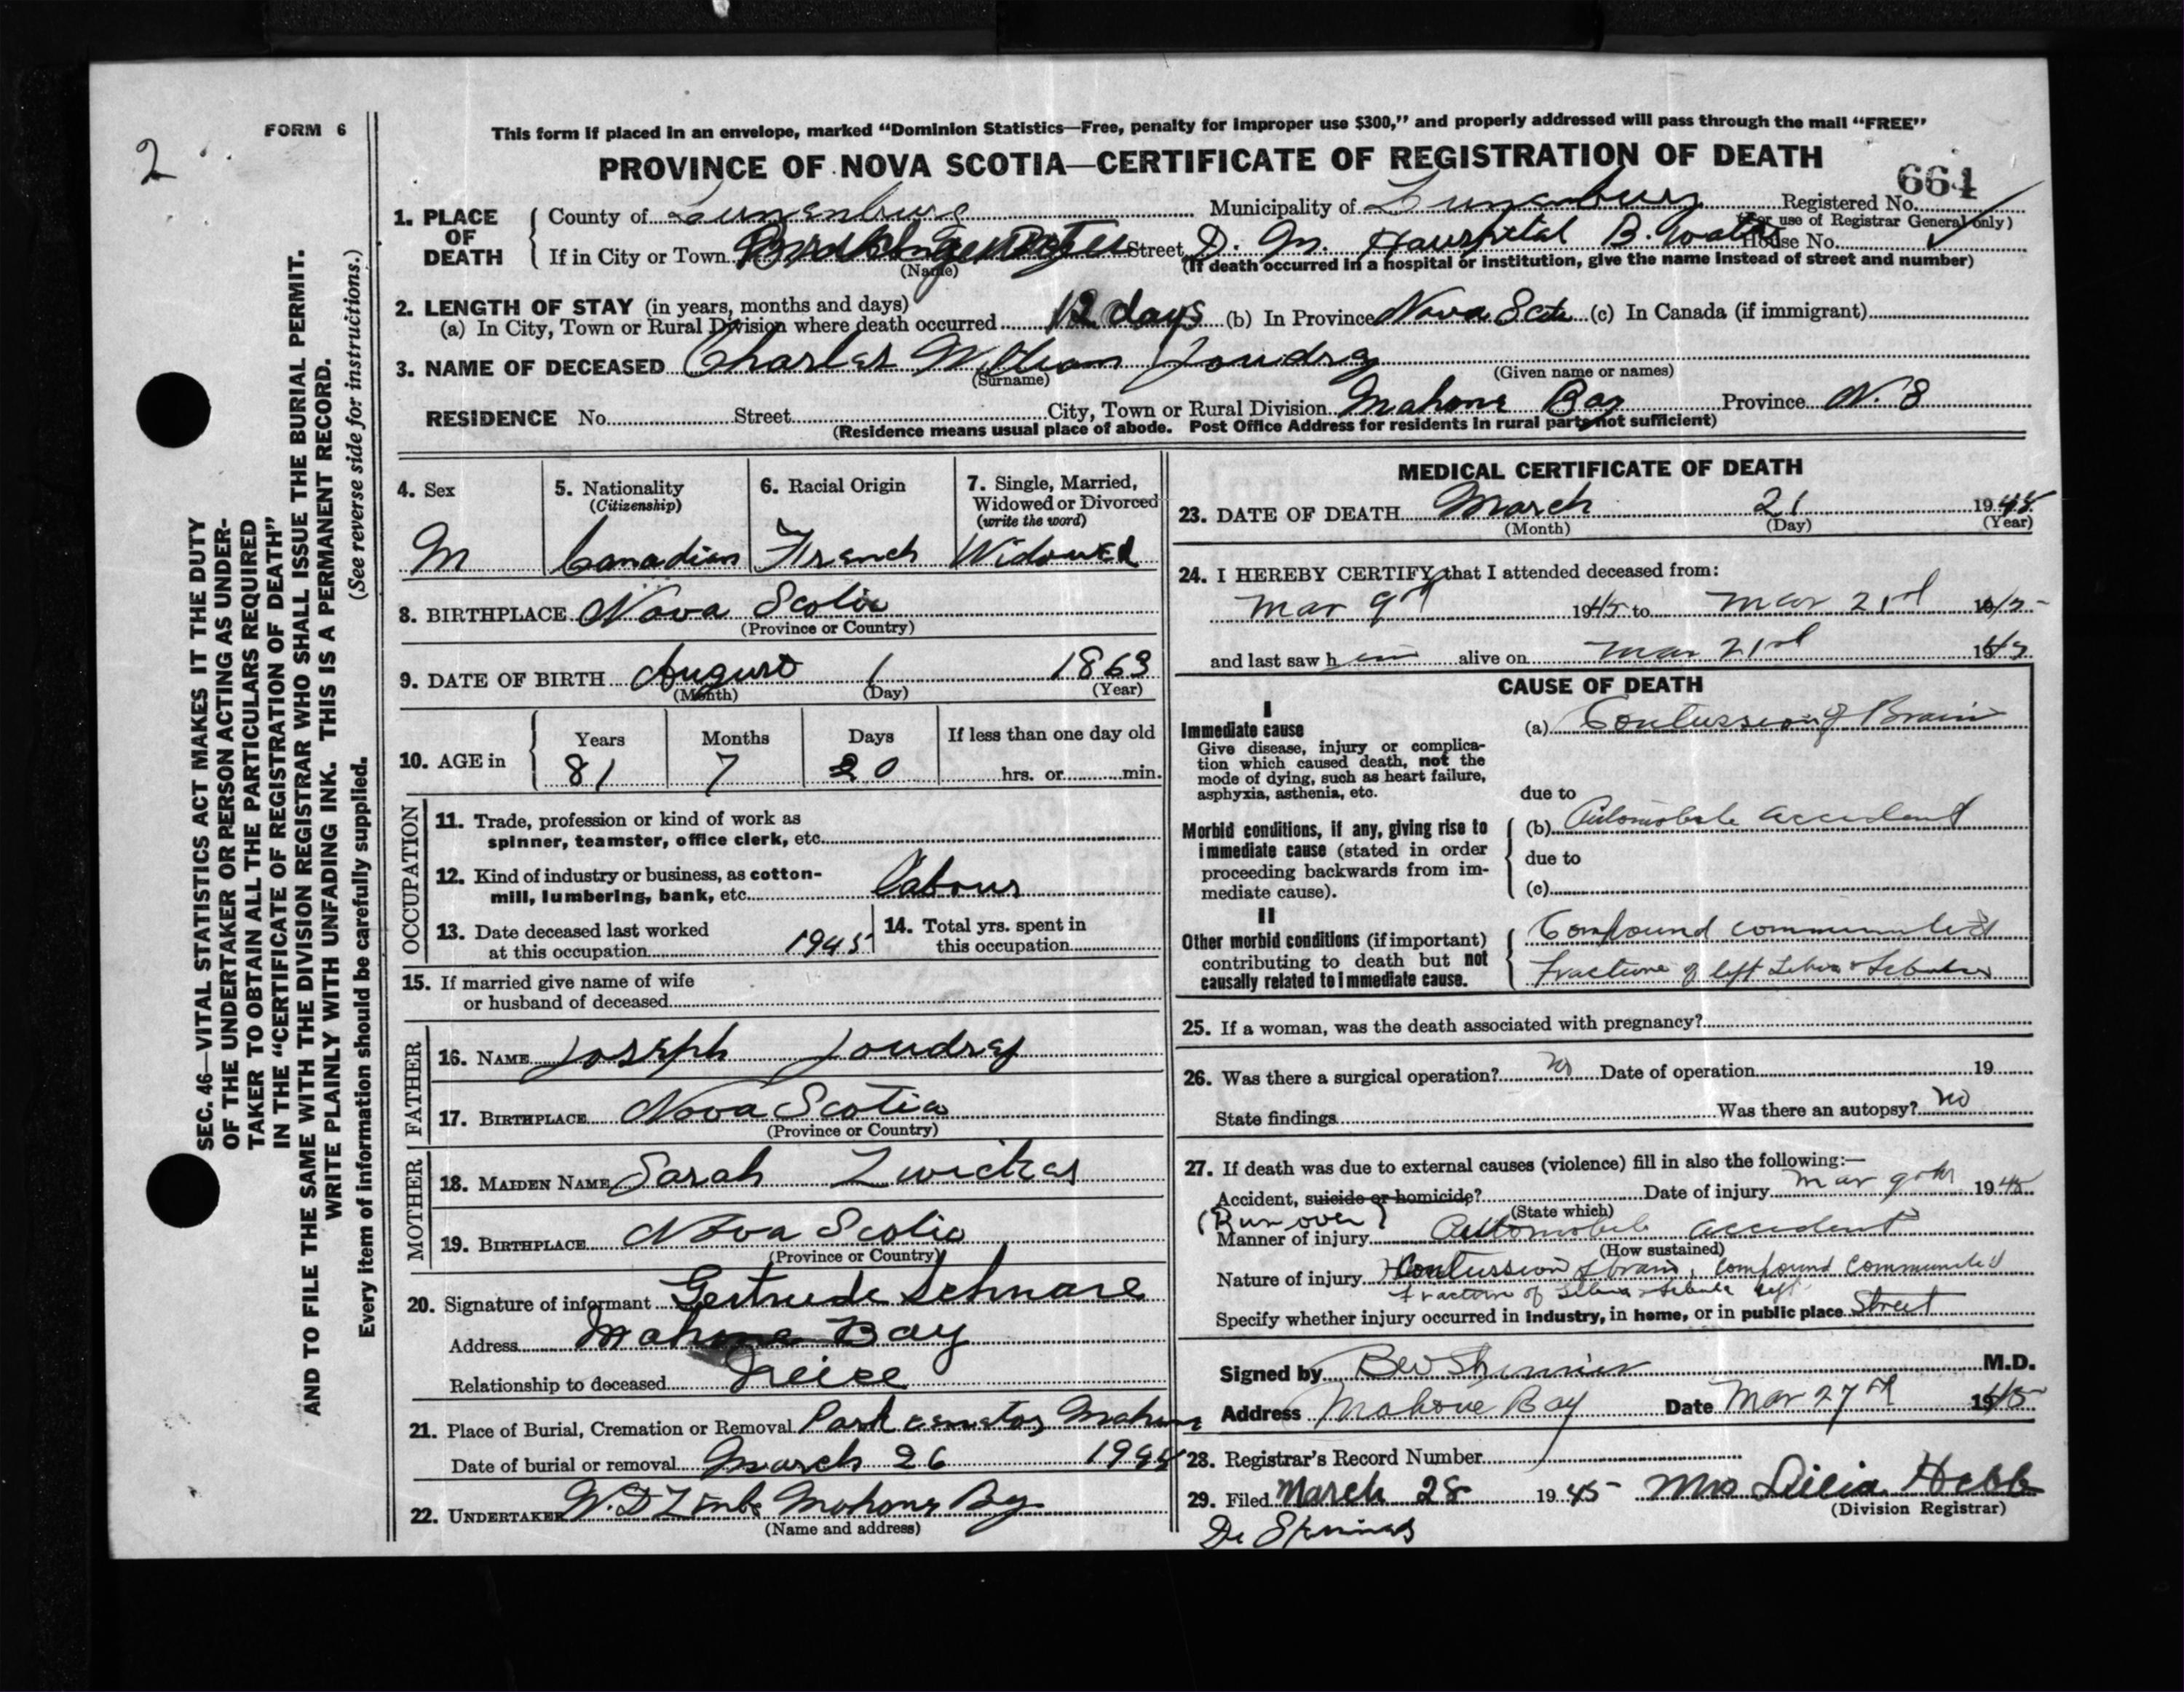 2
FORM 6
This form if placed in an envelope, marked "Dominion Statistics—Free, penalty for improper use $300," and properly addressed will pass through the mail "FREE"
PROVINCE OF NOVA SCOTIA—CERTIFICATE OF REGISTRATION OF DEATH
664
1. PLACE OF DEATH
County of Lunenburg Municipality of Lunenburg Registered No.
(For use of Registrar General only)
If in City or Town Street D. M. Hauspital B. Water House No.
(Name) (If death occurred in a hospital or institution, give the name instead of street and number)
2. LENGTH OF STAY (in years, months and days)
(a) In City, Town or Rural Division where death occurred 12 days (b) In Province Nova Scotia (c) In Canada (if immigrant)
3. NAME OF DECEASED Charles William Joudrey
(Surname) (Given name or names)
RESIDENCE No. Street City, Town or Rural Division Mahone Bay Province N.S
(Residence means usual place of abode. Post Office Address for residents in rural parts not sufficient)
4. Sex M
5. Nationality (Citizenship) Canadian
6. Racial Origin French
7. Single, Married, Widowed or Divorced (write the word) Widowed
8. BIRTHPLACE Nova Scotia
(Province or Country)
9. DATE OF BIRTH August 1 1863
(Month) (Day) (Year)
10. AGE in Years Months Days If less than one day old
81 7 20 hrs. or min.
OCCUPATION
11. Trade, profession or kind of work as
spinner, teamster, office clerk, etc.
12. Kind of industry or business, as cotton-
mill, lumbering, bank, etc. Labour
13. Date deceased last worked
at this occupation 1945
14. Total yrs. spent in
this occupation
15. If married give name of wife
or husband of deceased
FATHER
16. NAME Joseph Joudrey
17. BIRTHPLACE Nova Scotia
(Province or Country)
MOTHER
18. MAIDEN NAME Sarah Zwicker
19. BIRTHPLACE Nova Scotia
(Province or Country)
20. Signature of informant Gertrude Schnare
Address Mahone Bay
Relationship to deceased Neice
21. Place of Burial, Cremation or Removal Park Mahone
Date of burial or removal March 26 1945
22. UNDERTAKER W. D Mahone Bay
(Name and address)
MEDICAL CERTIFICATE OF DEATH
23. DATE OF DEATH March 21 1945
(Month) (Day) (Year)
24. I HEREBY CERTIFY that I attended deceased from:
Mar 9th 1945 to Mar 21st 1945
and last saw him alive on Mar 21st 1945
CAUSE OF DEATH
I
Immediate cause
Give disease, injury or complica-
tion which caused death, not the
mode of dying, such as heart failure,
asphyxia, asthenia, etc.
(a) Contussion of Brain
due to
Morbid conditions, if any, giving rise to
immediate cause (stated in order
proceeding backwards from im-
mediate cause).
(b) Automobile accident
due to
(c)
II
Other morbid conditions (if important)
contributing to death but not
causally related to immediate cause.
Compound communited
fracture of left tibia & fibula
25. If a woman, was the death associated with pregnancy?
26. Was there a surgical operation? No Date of operation 19
State findings Was there an autopsy? No
27. If death was due to external causes (violence) fill in also the following:—
Accident, suicide or homicide? Date of injury Mar 9th 1945
(State which)
(Run over)
Manner of injury Automobile accident
(How sustained)
Nature of injury Contussion of brain, compound communited
fracture of tibia & fibula left
Specify whether injury occurred in industry, in home, or in public place Street
Signed by M.D.
Address Mahone Bay Date Mar 27th 1945
28. Registrar's Record Number
29. Filed March 28 1945 Mrs Lilia Hebb
(Division Registrar)
SEC. 46—VITAL STATISTICS ACT MAKES IT THE DUTY
OF THE UNDERTAKER OR PERSON ACTING AS UNDER-
TAKER TO OBTAIN ALL THE PARTICULARS REQUIRED
IN THE "CERTIFICATE OF REGISTRATION OF DEATH"
AND TO FILE THE SAME WITH THE DIVISION REGISTRAR WHO SHALL ISSUE THE BURIAL PERMIT.
WRITE PLAINLY WITH UNFADING INK. THIS IS A PERMANENT RECORD.
Every item of information should be carefully supplied. (See reverse side for instructions.)